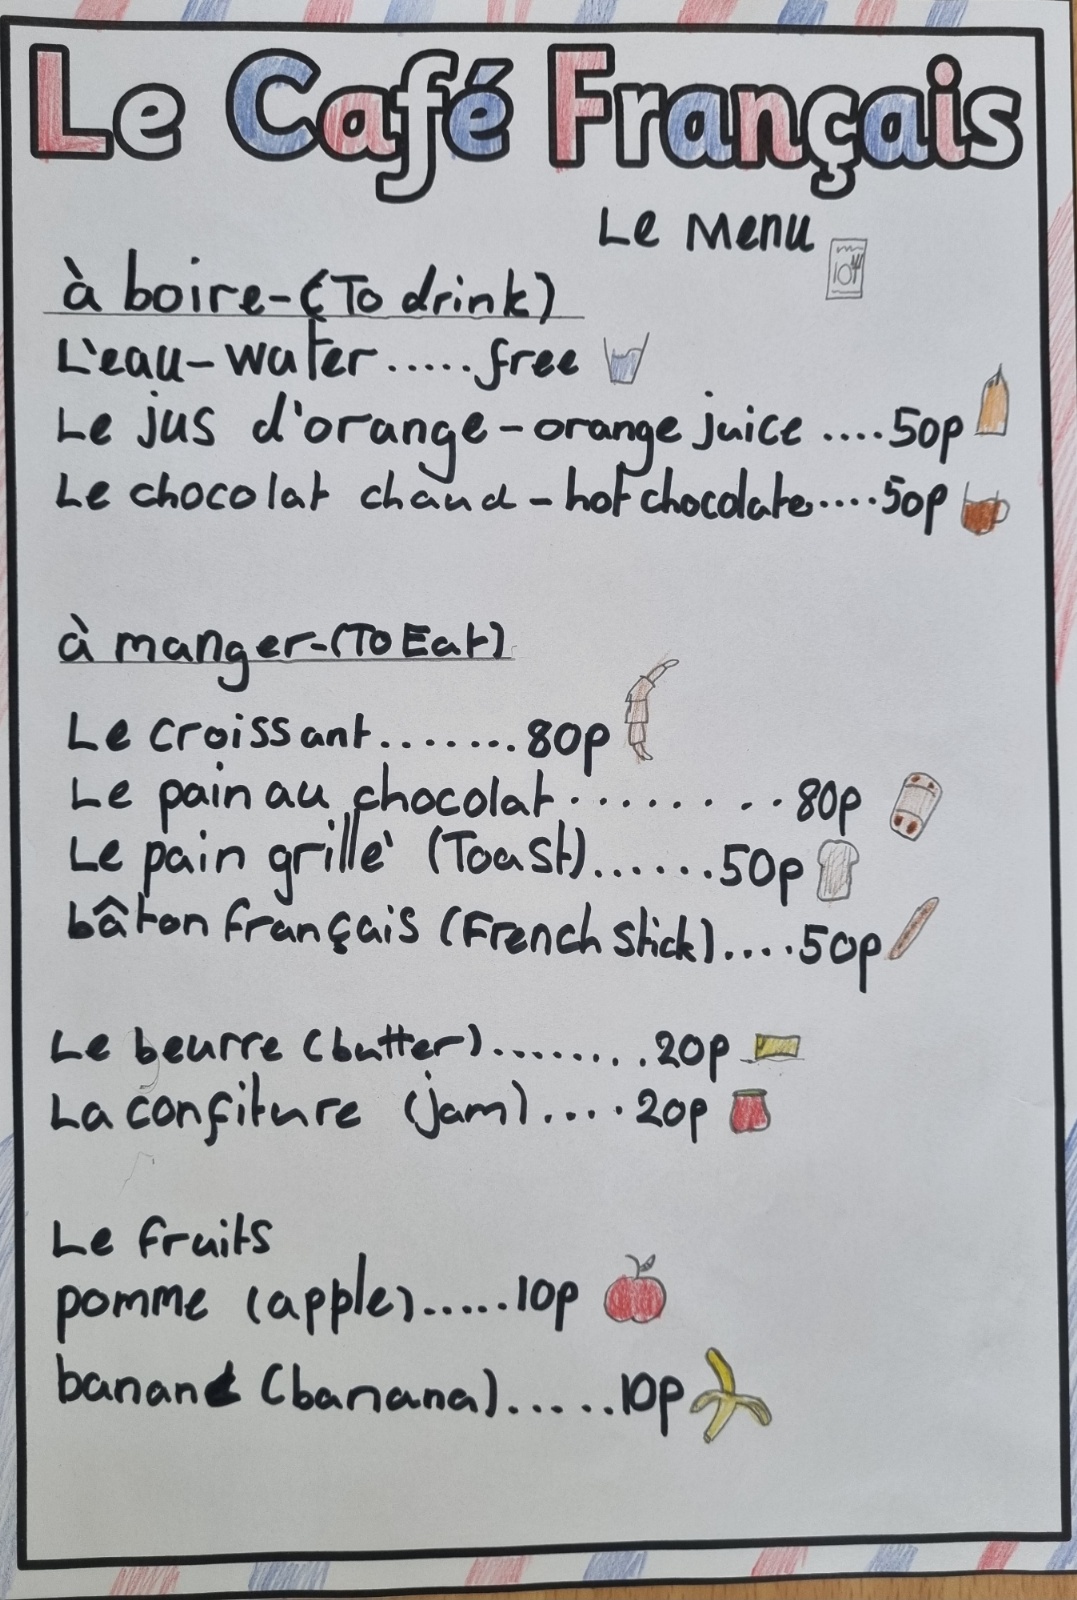 Le Café Français
Le Menu
à boire-(To drink)
L'eau-water.....free
Le jus d'orange-orange juice ....50p
Le chocolat chaud-hot chocolate....50p
à manger-(To Eat)
Le croissant.......80p
Le pain au chocolat..........80p
Le pain grillé (Toast)......50p
bâton français (French stick)....50p
Le beurre (butter)........20p
La confiture (jam)....20p
Le fruits
pomme (apple).....10p
banane (banana).....10p